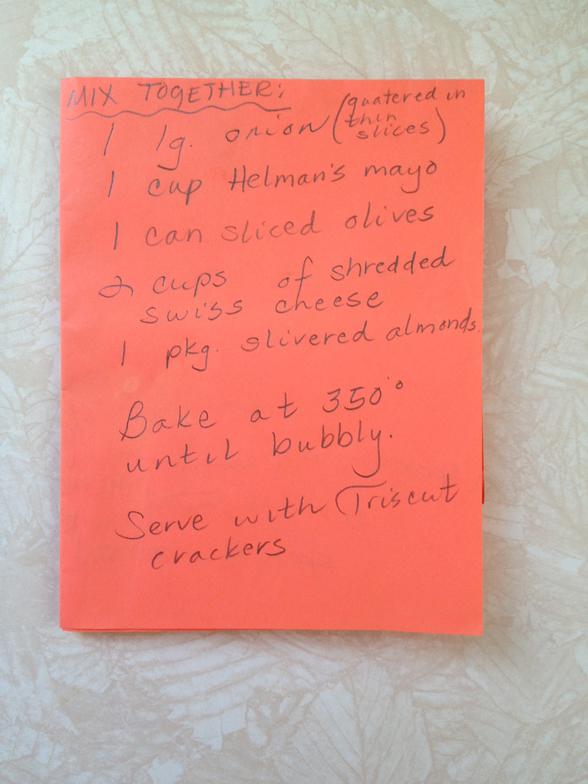 MIX TOGETHER:
1 lg. onion (quatered in
thin
slices)
1 cup Helman's mayo
1 can sliced olives
2 cups of shredded
swiss cheese
1 pkg. slivered almonds.
Bake at 350°
until bubbly.
Serve with Triscut
crackers